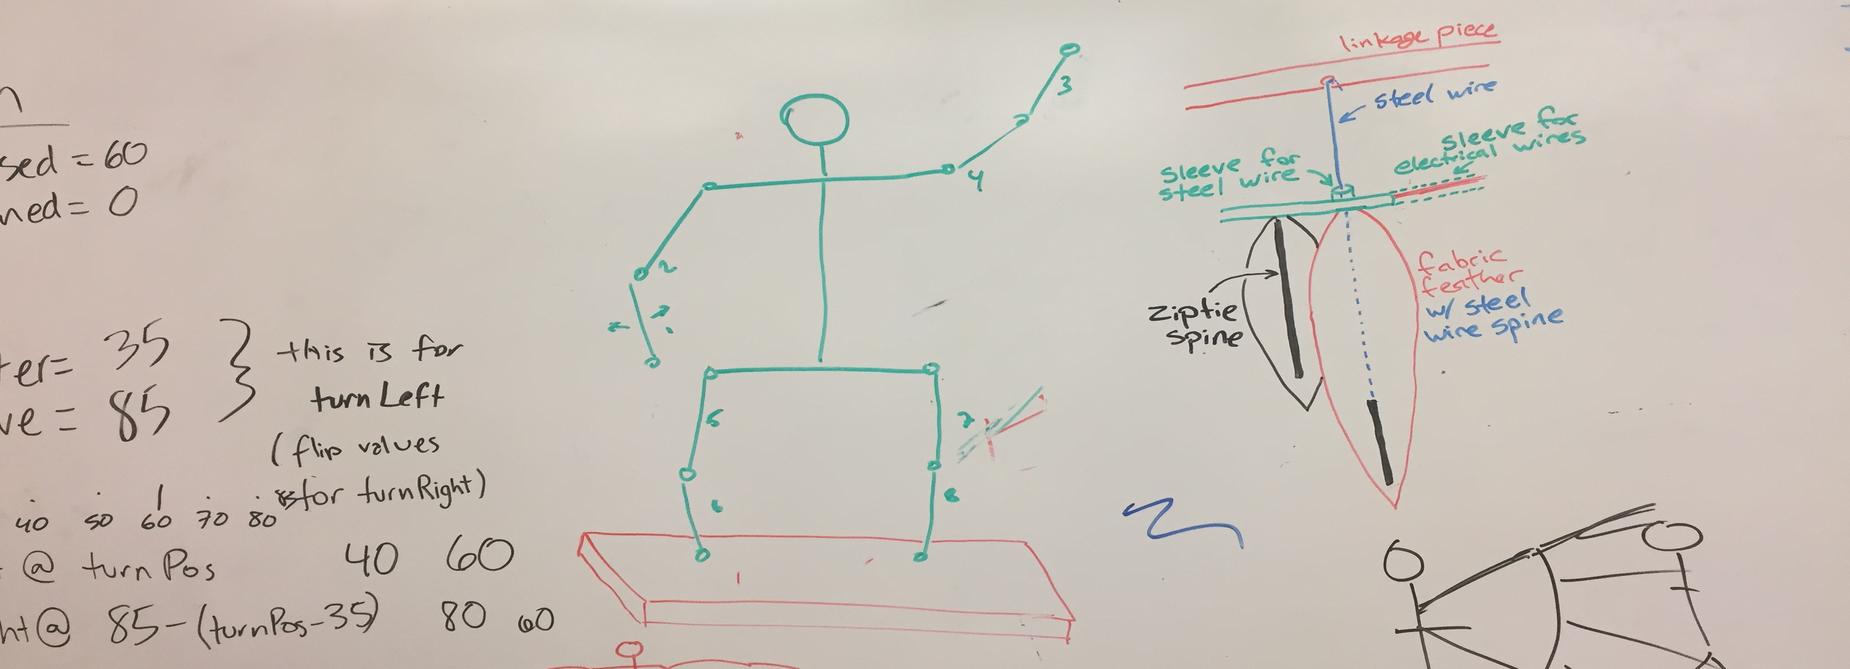 sed = 60
ned = 0
ter = 35
ve = 85
this is for
turnLeft
(flip values
for turnRight)
40 50 60 70 80
@ turnPos 40 60
ht @ 85-(turnPos-35) 80 60
3
4
2
5
7
6
8
linkage piece
steel wire
sleeve for
electrical wires
sleeve for
steel wire
ziptie
spine
fabric
feather
w/ steel
wire spine